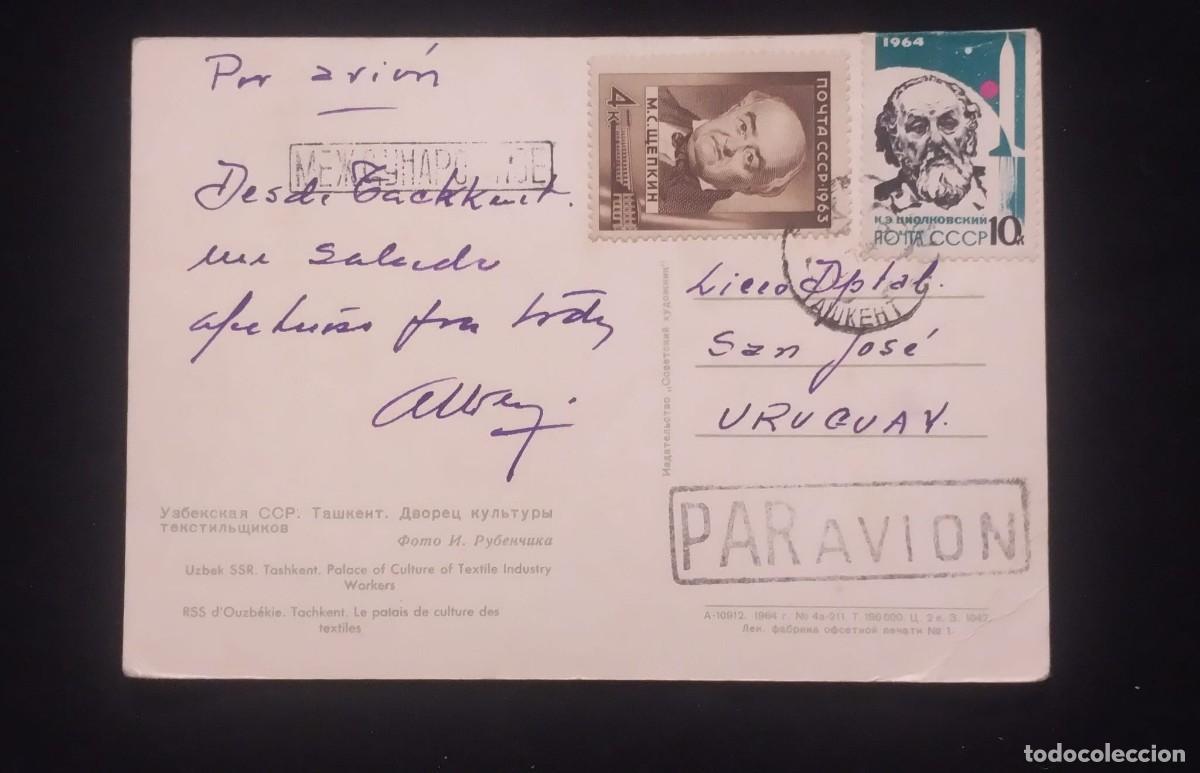 Por avión
МЕЖДУНАРО ОЕ
Desde Tachkent.
un saludo
afectuoso para
Liceo Dptal.
San José
URUGUAY.
ПОЧТА СССР·1963
М.С.ЩЕПКИН
4к
1964
К.Э.ЦИОЛКОВСКИЙ
ПОЧТА СССР 10к
ТАШКЕНТ
Издательство „Советский художник“
PAR AVION
Узбекская ССР. Ташкент. Дворец культуры
текстильщиков
Фото И. Рубенчика
Uzbek SSR. Tashkent. Palace of Culture of Textile Industry
Workers
RSS d'Ouzbékie. Tachkent. Le palais de culture des
textiles
А-10912. 1964 г. № 4а-211. Т. 190 000. Ц. 2 к. З. 1042
Лен. фабрика офсетной печати № 1.
todocoleccion